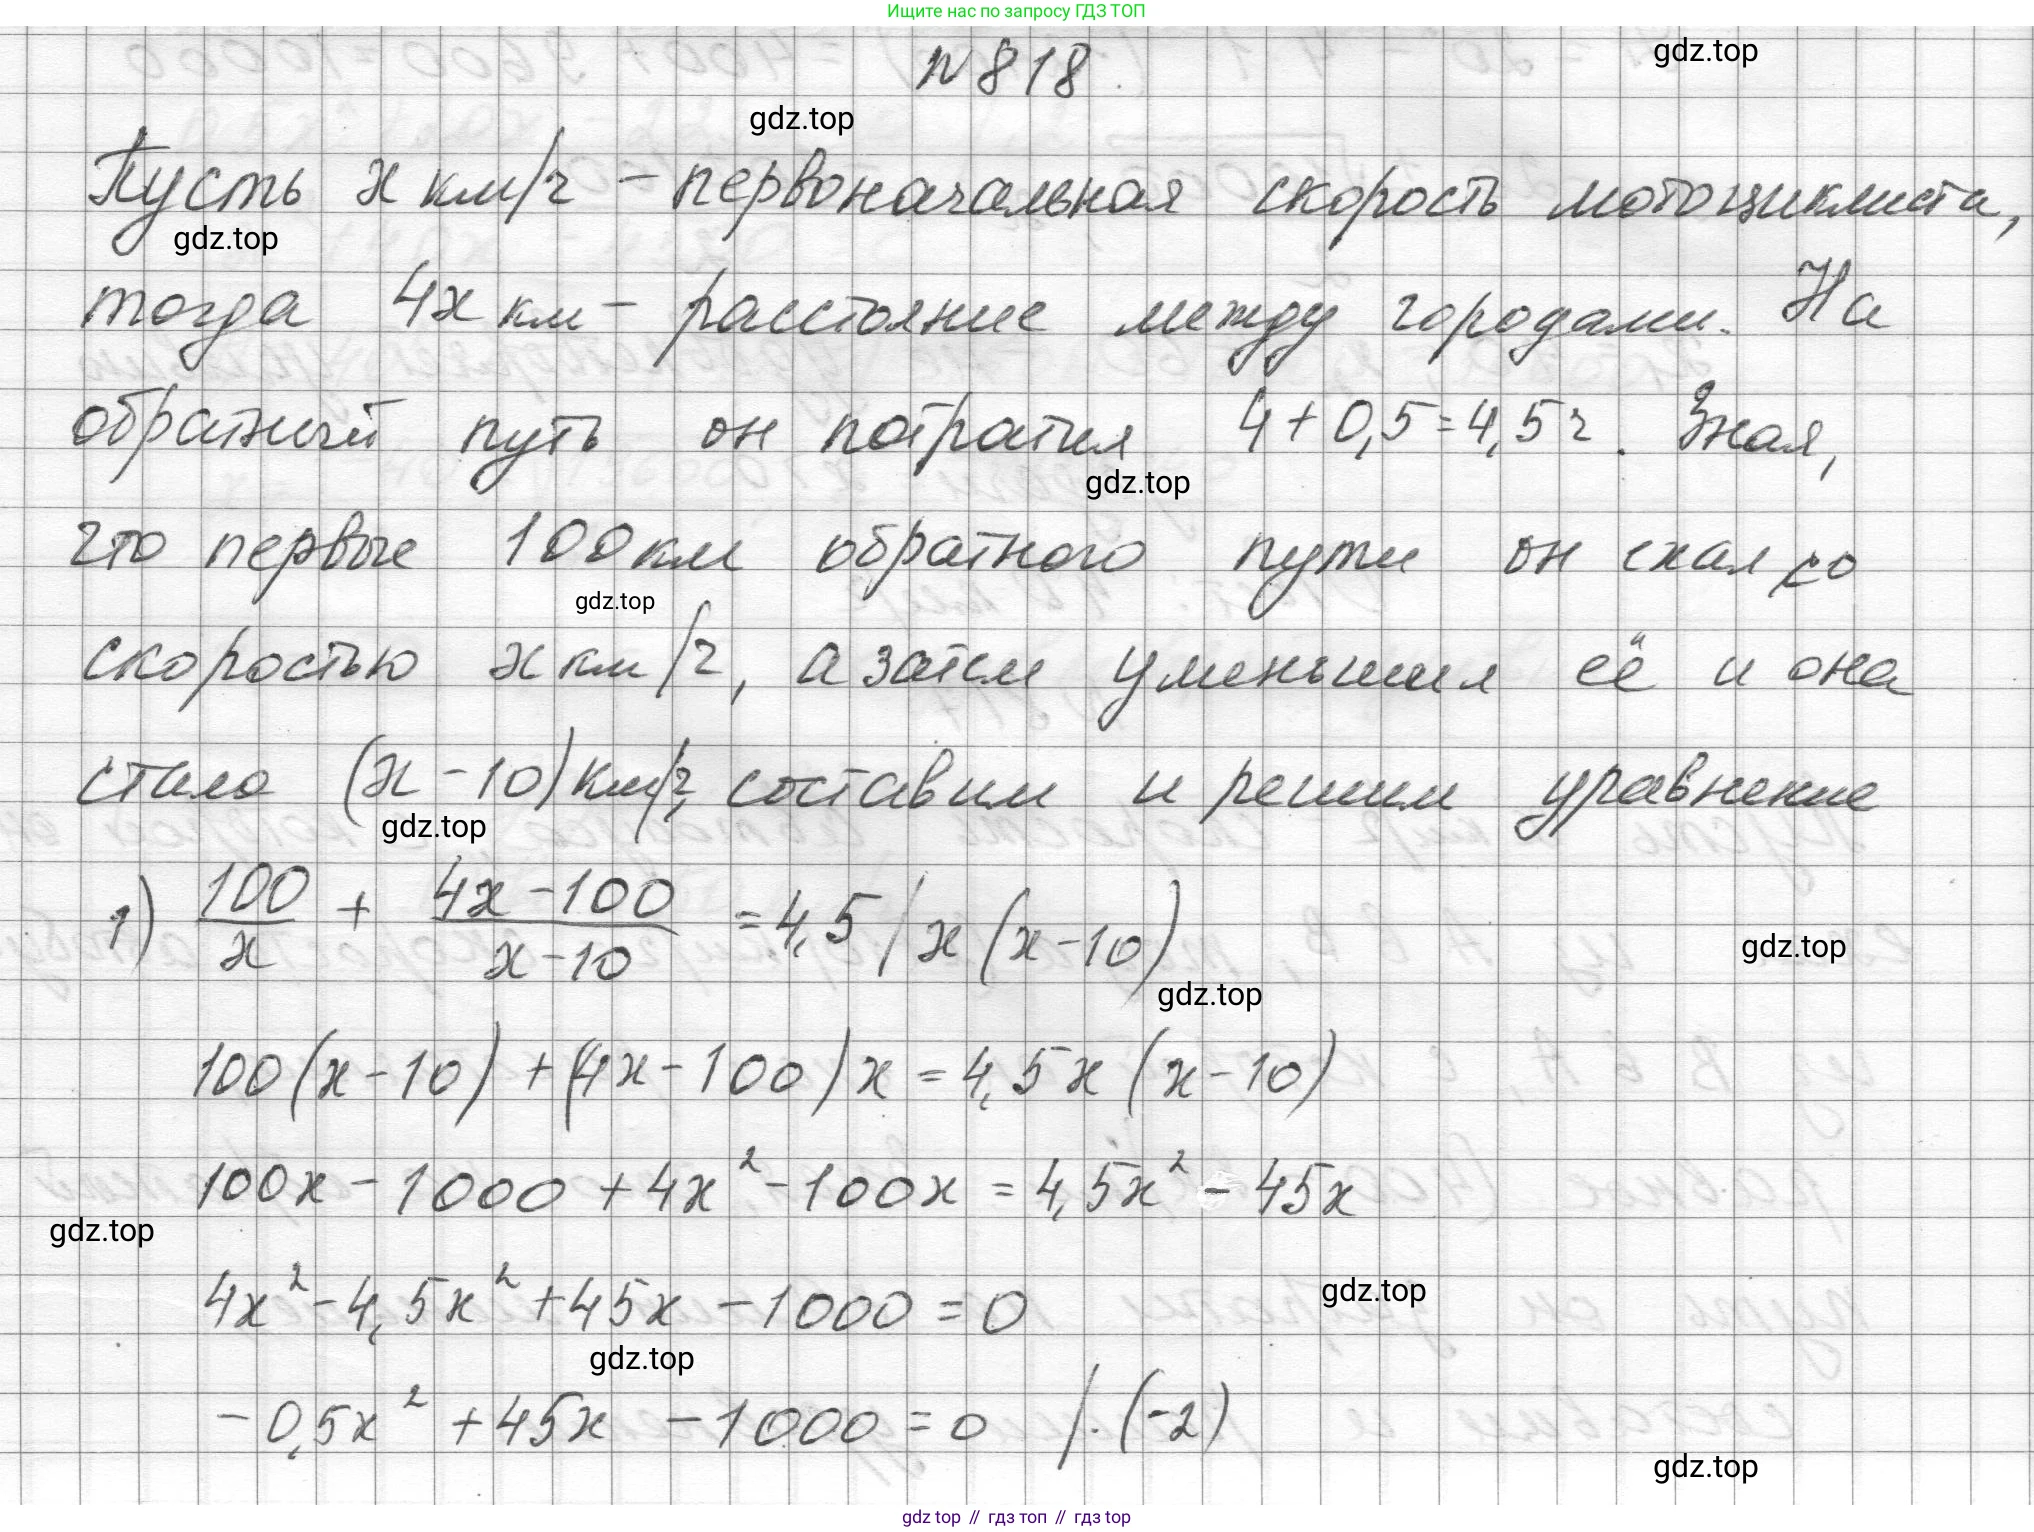 Ищите нас по запросу ГДЗ ТОП
gdz.top
N 818.
gdz.top
Пусть x км/ч – первоначальная скорость мотоциклиста,
gdz.top
тогда 4x км – расстояние между городами. На
обратный путь он потратил 4 + 0,5 = 4,5 ч. Зная,
gdz.top
что первые 100 км обратного пути он ехал со
gdz.top
скоростью x км/ч, а затем уменьшил её и она
стала (x – 10) км/ч, составим и решим уравнение
gdz.top
1) 100/x + (4x – 100)/(x – 10) = 4,5 | x (x – 10)
gdz.top
gdz.top
100(x – 10) + (4x – 100)x = 4,5x (x – 10)
100x – 1000 + 4x² – 100x = 4,5x² – 45x
gdz.top
4x² – 4,5x² + 45x – 1000 = 0
gdz.top
gdz.top
– 0,5x² + 45x – 1000 = 0 | · (-2)
gdz.top
gdz.top // гдз топ // gdz top